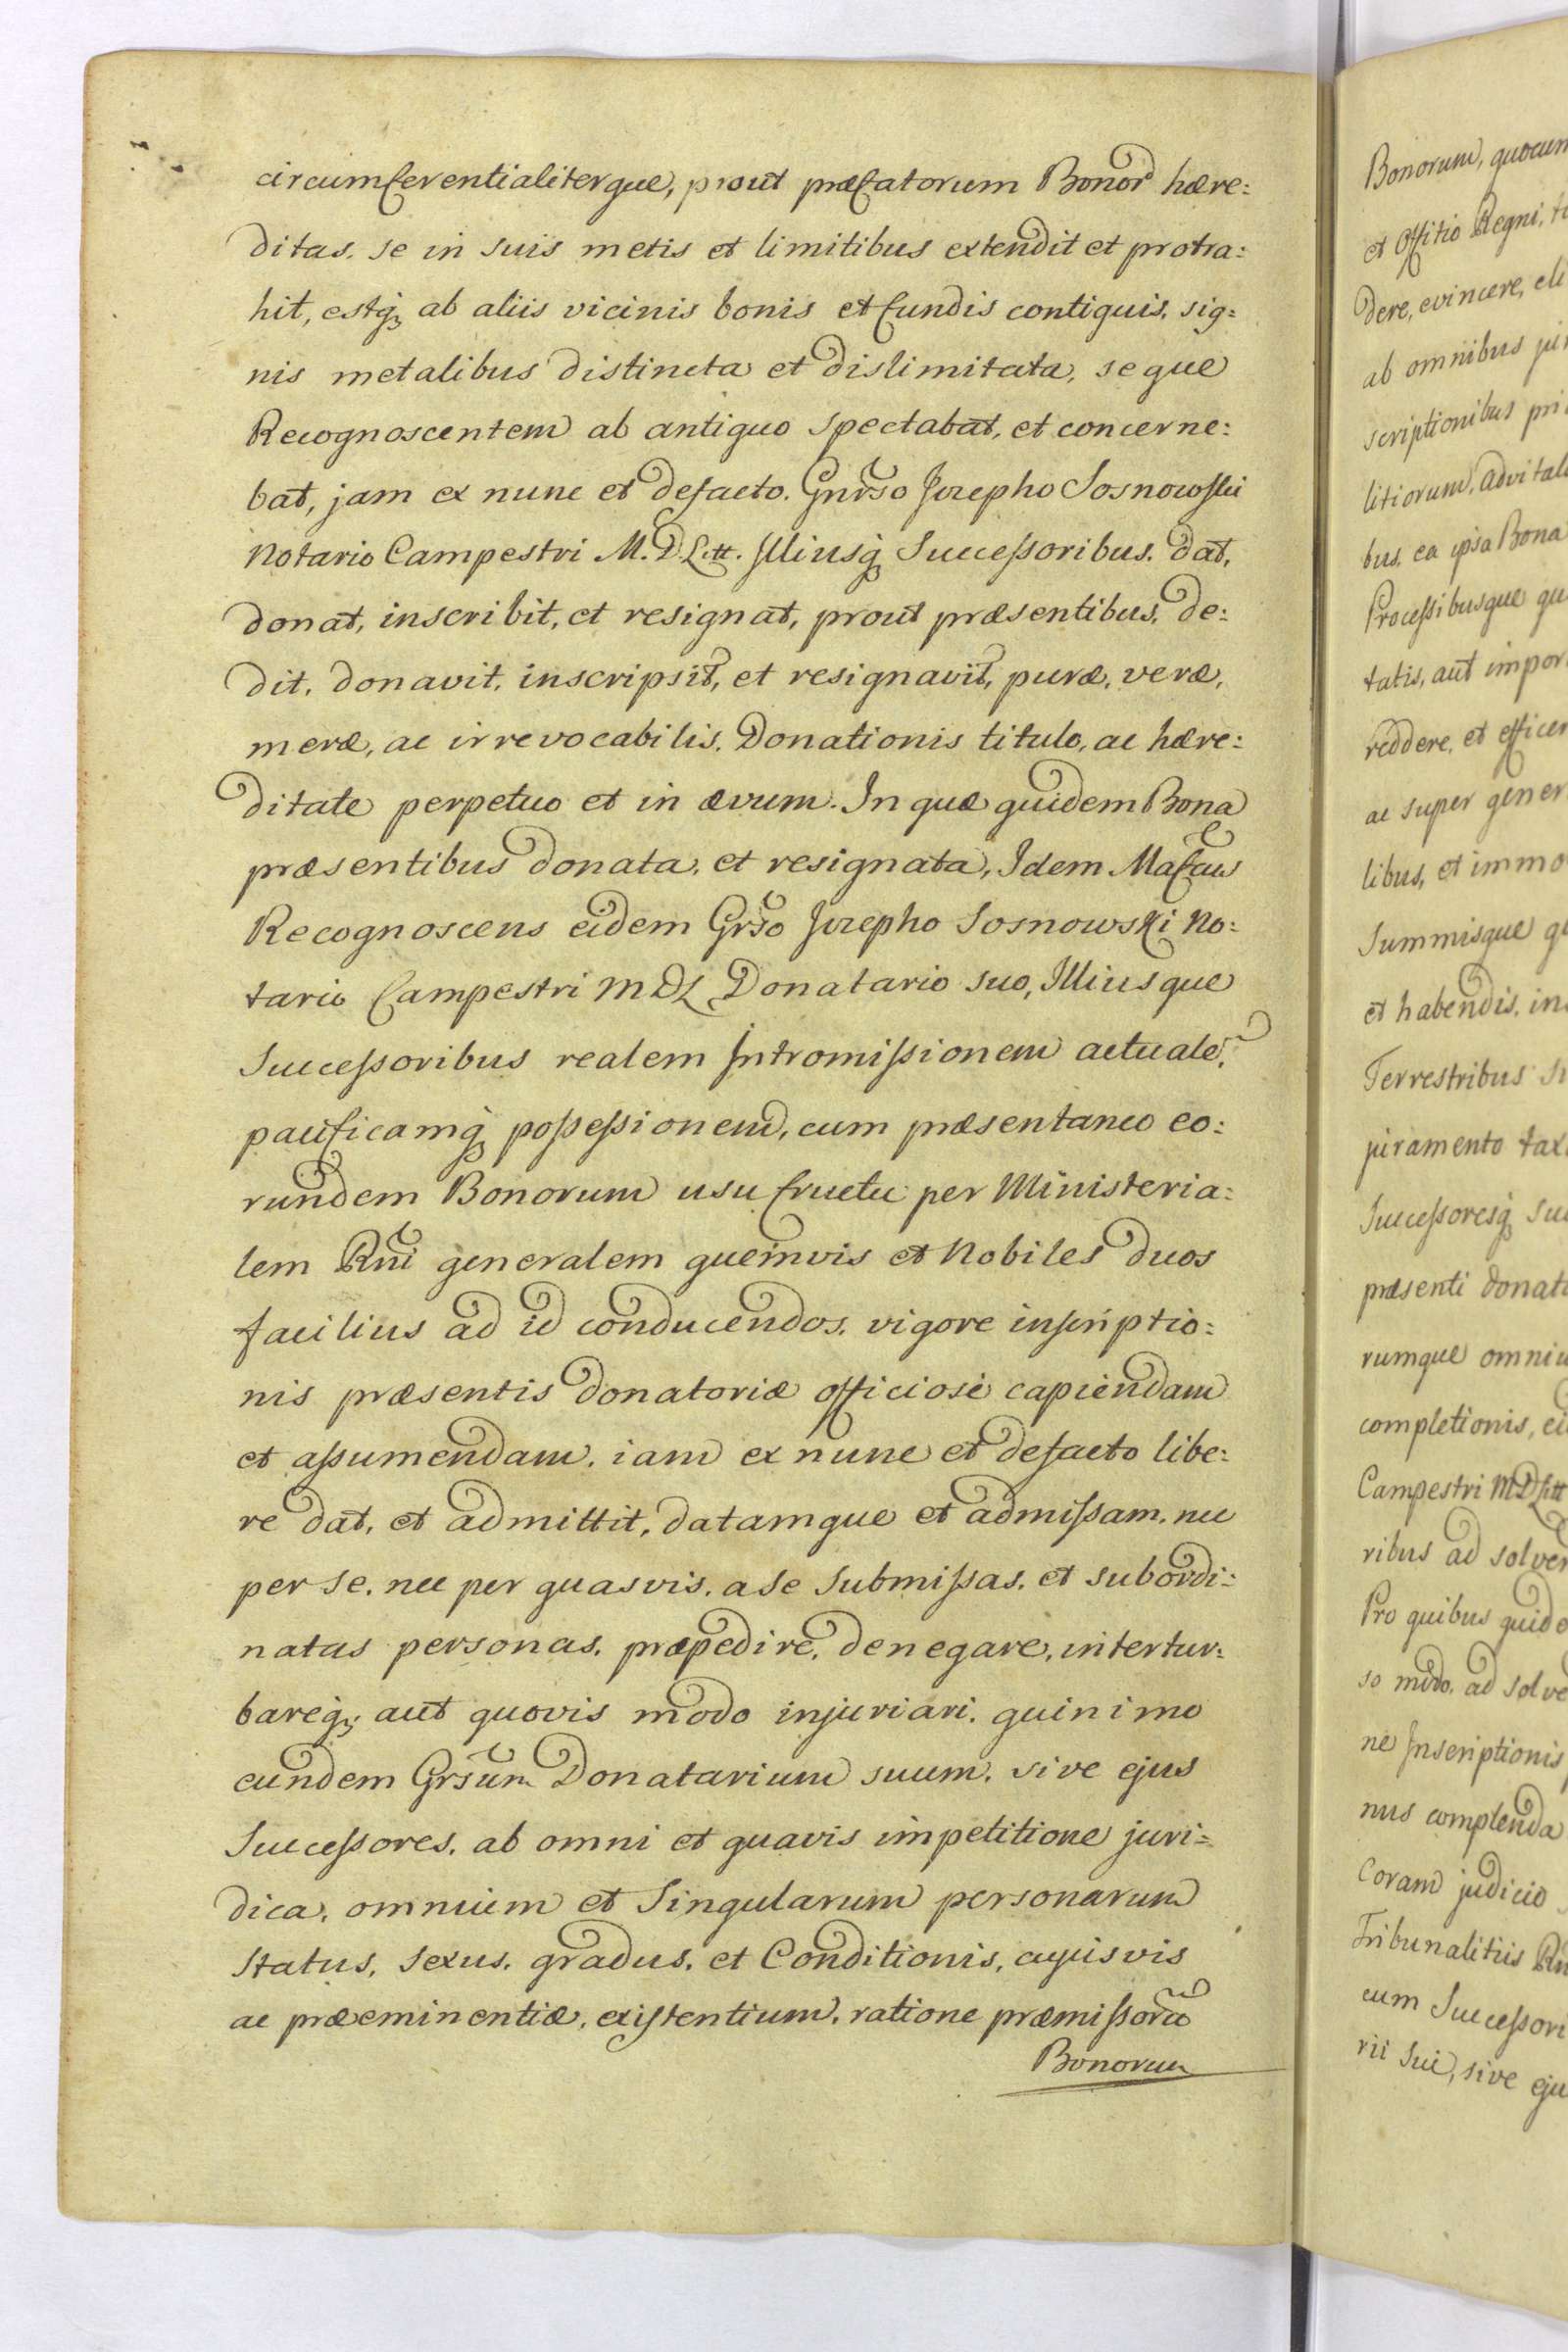 circumferentialiterque, prout præfatorum Bonor hære:
ditas, se in suis metis et limitibus extendit et protra:
hit, estq; ab aliis vicinis bonis et fundis contiguis, sig:
nis metalibus distincta et dislimitata, seque
Recognoscentem ab antiquo spectabat, et concerne:
bat, jam ex nunc et defacto. Gnrso Josepho Sosnowski
Notario Campestri M. D. Litt. Illiusq; Successoribus. dat,
donat, inscribit, et resignat, prout præsentibus, de:
dit, donavit, inscripsit, et resignavit, puræ, veræ,
meræ, ac irrevocabilis, Donationis titulo, ac hære:
ditate perpetuo et in ævum. In quæ quidem Bona
præsentibus donata, et resignata, Idem
Recognoscens eidem Grso Josepho Sosnowski No:
tario Campestri M D L Donatario suo, Illiusque
Successoribus realem Intromissionem actuale,
pacificamq; possessionem, cum præsentaneo eo:
rundem Bonorum usufructu per Ministeria:
lem Rni generalem quemvis et Nobiles duos
facilius ad id conducendos, vigore inscriptio:
nis præsentis donatoriæ officiose capiendam
et assumendam, iam ex nunc et defacto libe:
re dat, et admittit, datamque et admissam, nec
per se, nec per quasvis, a se submissas, et subordi:
natas personas, præpedire, denegare, intertur:
bareq; aut quovis modo injuriari, quinimo
eundem Grsum Donatarium suum, sive ejus
Successores, ab omni et quavis impetitione juri:
dica, omnium et Singularum personarum
Status, Sexus, gradus, et Conditionis, cujusvis
ac præeminentiæ, existentium, ratione præmissoru
Bonorum
Bonorum, quocun
et Offitio Regni, t
dere, evincere, eli
ab omnibus jur
scriptionibus pri
litiorum, advital
bus, ea ipsa Bona
Processibusque qu
tatis, aut impor
reddere, et efficer
ac super gener
libus, et immo
Summisque qu
et habendis, ins
Terrestribus
juramento tax
Successoresq; su
præsenti donat
rumque omniu
completionis, ei
Campestri M D Litt
ribus ad solven
Pro quibus quide
so modo, ad solve
ne Inscriptionis
nus complenda
Coram judicio
Tribunalitiis Rn
cum Successori
rii Sui, sive eju